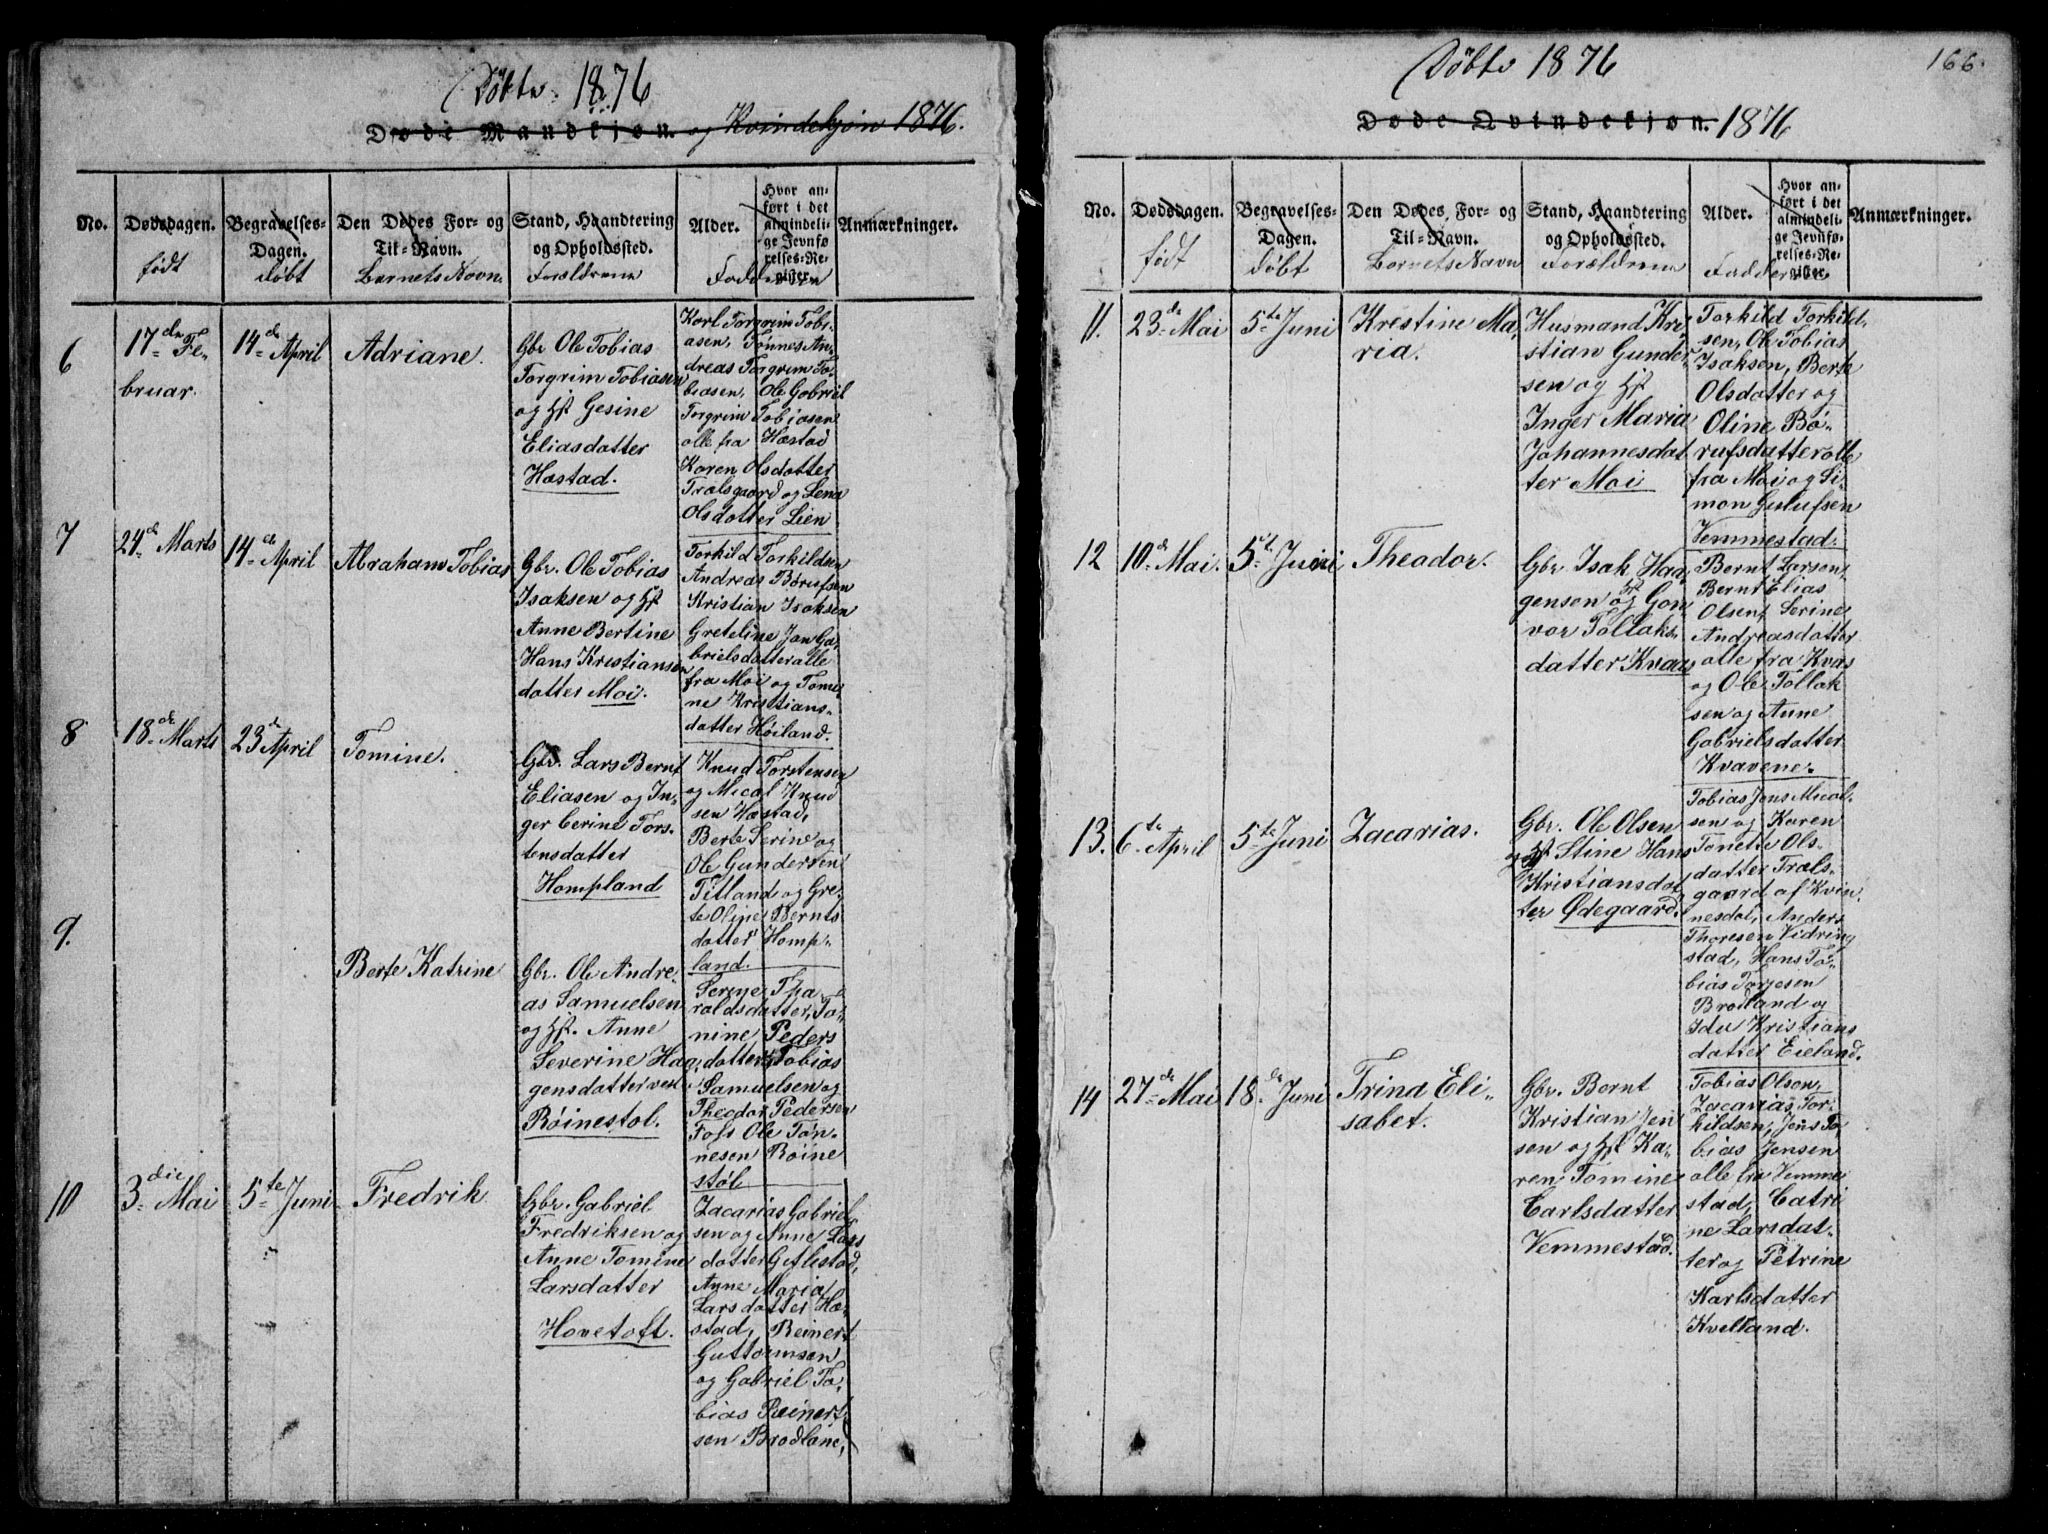 Døbte 1876
Døde Mandkjøn. og Kvindekjøn 1876.
No.
Dødsdagen.
født
Begravelses-
Dagen.
døbt
Den Dødes For- og
Til-Navn.
Barnets Navn.
Stand, Haandtering
og Opholdssted.
Forældrene
Alder.
Hvor an-
ført i det
almindeli-
ge Jevnfø-
relses-Re-
gister.
Fadderne
Anmærkninger.
6
17de Fe-
bruar.
14de April
Adriane.
Gbr Ole Tobias
Torgrim Tobiasen
og Hst Gesine
Eliasdatter
Hæstad.
Karl Torgrim Tobi-
asen, Tønnes An-
dreas Torgrim To-
biasen, Ole Gabriel
Torgrim Tobiasen
alle fra Hæstad
Karen Olsdatter
Trælsgaard og Lena
Olsdatter Lien
7
24de Marts
14de April
Abraham Tobias
Gbr. Ole Tobias
Isaksen og Hst
Anne Bertine
Hans Kristiansen
datter Moi.
Torkild Torkildsen
Andreas Børufsen
Kristian Isaksen
Greteline Jan Ga-
brielsdatter alle
fra Moi og Tomi-
ne Kristians-
datter Høiland.
8
18de Marts
23de April
Tomine.
Gbr. Lars Bernt
Eliasen og In-
ger Cerine Tors-
tensdatter
Hompland
Knud Torstensen
og Mical Knud
sen Hæstad,
Berte Serine og
Ole Gundersen
Titland og Gre-
te Oline Bernts
datter Homp-
land.
9.
Berte Katrine
Gbr. Ole Andre-
as Samuelsen
og Hst. Anne
Severine Haa-
gensdatter vest-
Røinestøl.
Serine Tha-
raldsdatter, To-
nine Peders
datter, Tobias
Samuelsen og
Theodor Pedersen
Foss Ole Tøn-
nesen Røine
støl
10
3die Mai
5te Juni
Fredrik.
Gbr. Gabriel
Fredriksen og
Anne Tomine
Larsdatter
Hovetoft.
Zacarias Gabriel-
sen og Anne Lars
datter Gitlestad,
Anne Maria
Larsdatter Hæ-
stad, Reinert
Guttormsen
og Gabriel To-
bias Reinert-
sen Brødlane,
Døbte 1876
166.
Døde Qvindekjøn. 1876
No.
Dødsdagen.
født
Begravelses-
Dagen.
døbt
Den Dødes, For- og
Til-Navn.
Barnets Navn
Stand, Haandtering
og Opholdssted.
Forældrene
Alder.
Hvor an-
ført i det
almindeli-
ge Jevnfø-
relses-Re-
gister.
Fadderne
Anmærkninger.
11.
23de Mai
5te Juni
Krestine Ma-
ria.
Husmand Kri-
stian Gunder
sen og Hst
Inger Maria
Johannesdat
ter Moi
Torkild Torkild-
sen, Ole Tobias
Isaksen, Berte
Olsdatter og
Oline Bø-
rufsdatter alle
fra Moi og Si-
mon Gulufsen
Vemmestad.
12
10de Mai.
5te Juni
Theodor.
Gbr. Isak Haa-
gensen og Hst Gon
vor Tollaks-
datter Kvaas
Bernt Larsen,
Bernt Elias
Olsen, Serine
Andreasdatter
alle fra Kvas
og Ole Tollak
sen og Anne
Gabrielsdatter
Kvavene.
13.
6te April
5te Juni
Zacarias.
Gbr. Ole Olsen
og Hst Stine Hans
Kristiansdat
ter Ødegaard.
Tobias Jens Mical-
sen og Karen
Tonette Ols-
datter Træls-
gaard af Kvin
nesdal, Anders
Thoresen Vidring
stad, Hans To-
bias Torjesen
Brødland og
Ida Kristians
datter Eieland.
14
27de Mai
18de Juni
Trina Eli-
sabet.
Gbr. Bernt
Kristian Jen
sen og Hst Ka-
ren Tomine
Carlsdatter
Vemmestad.
Tobias Olsen,
Zacarias Tor-
kildsen, Jens To-
bias Jensen
alle fra Vemme
stad, Catri
ne Larsdat-
ter og Petrine
Karlsdatter
Kvelland.